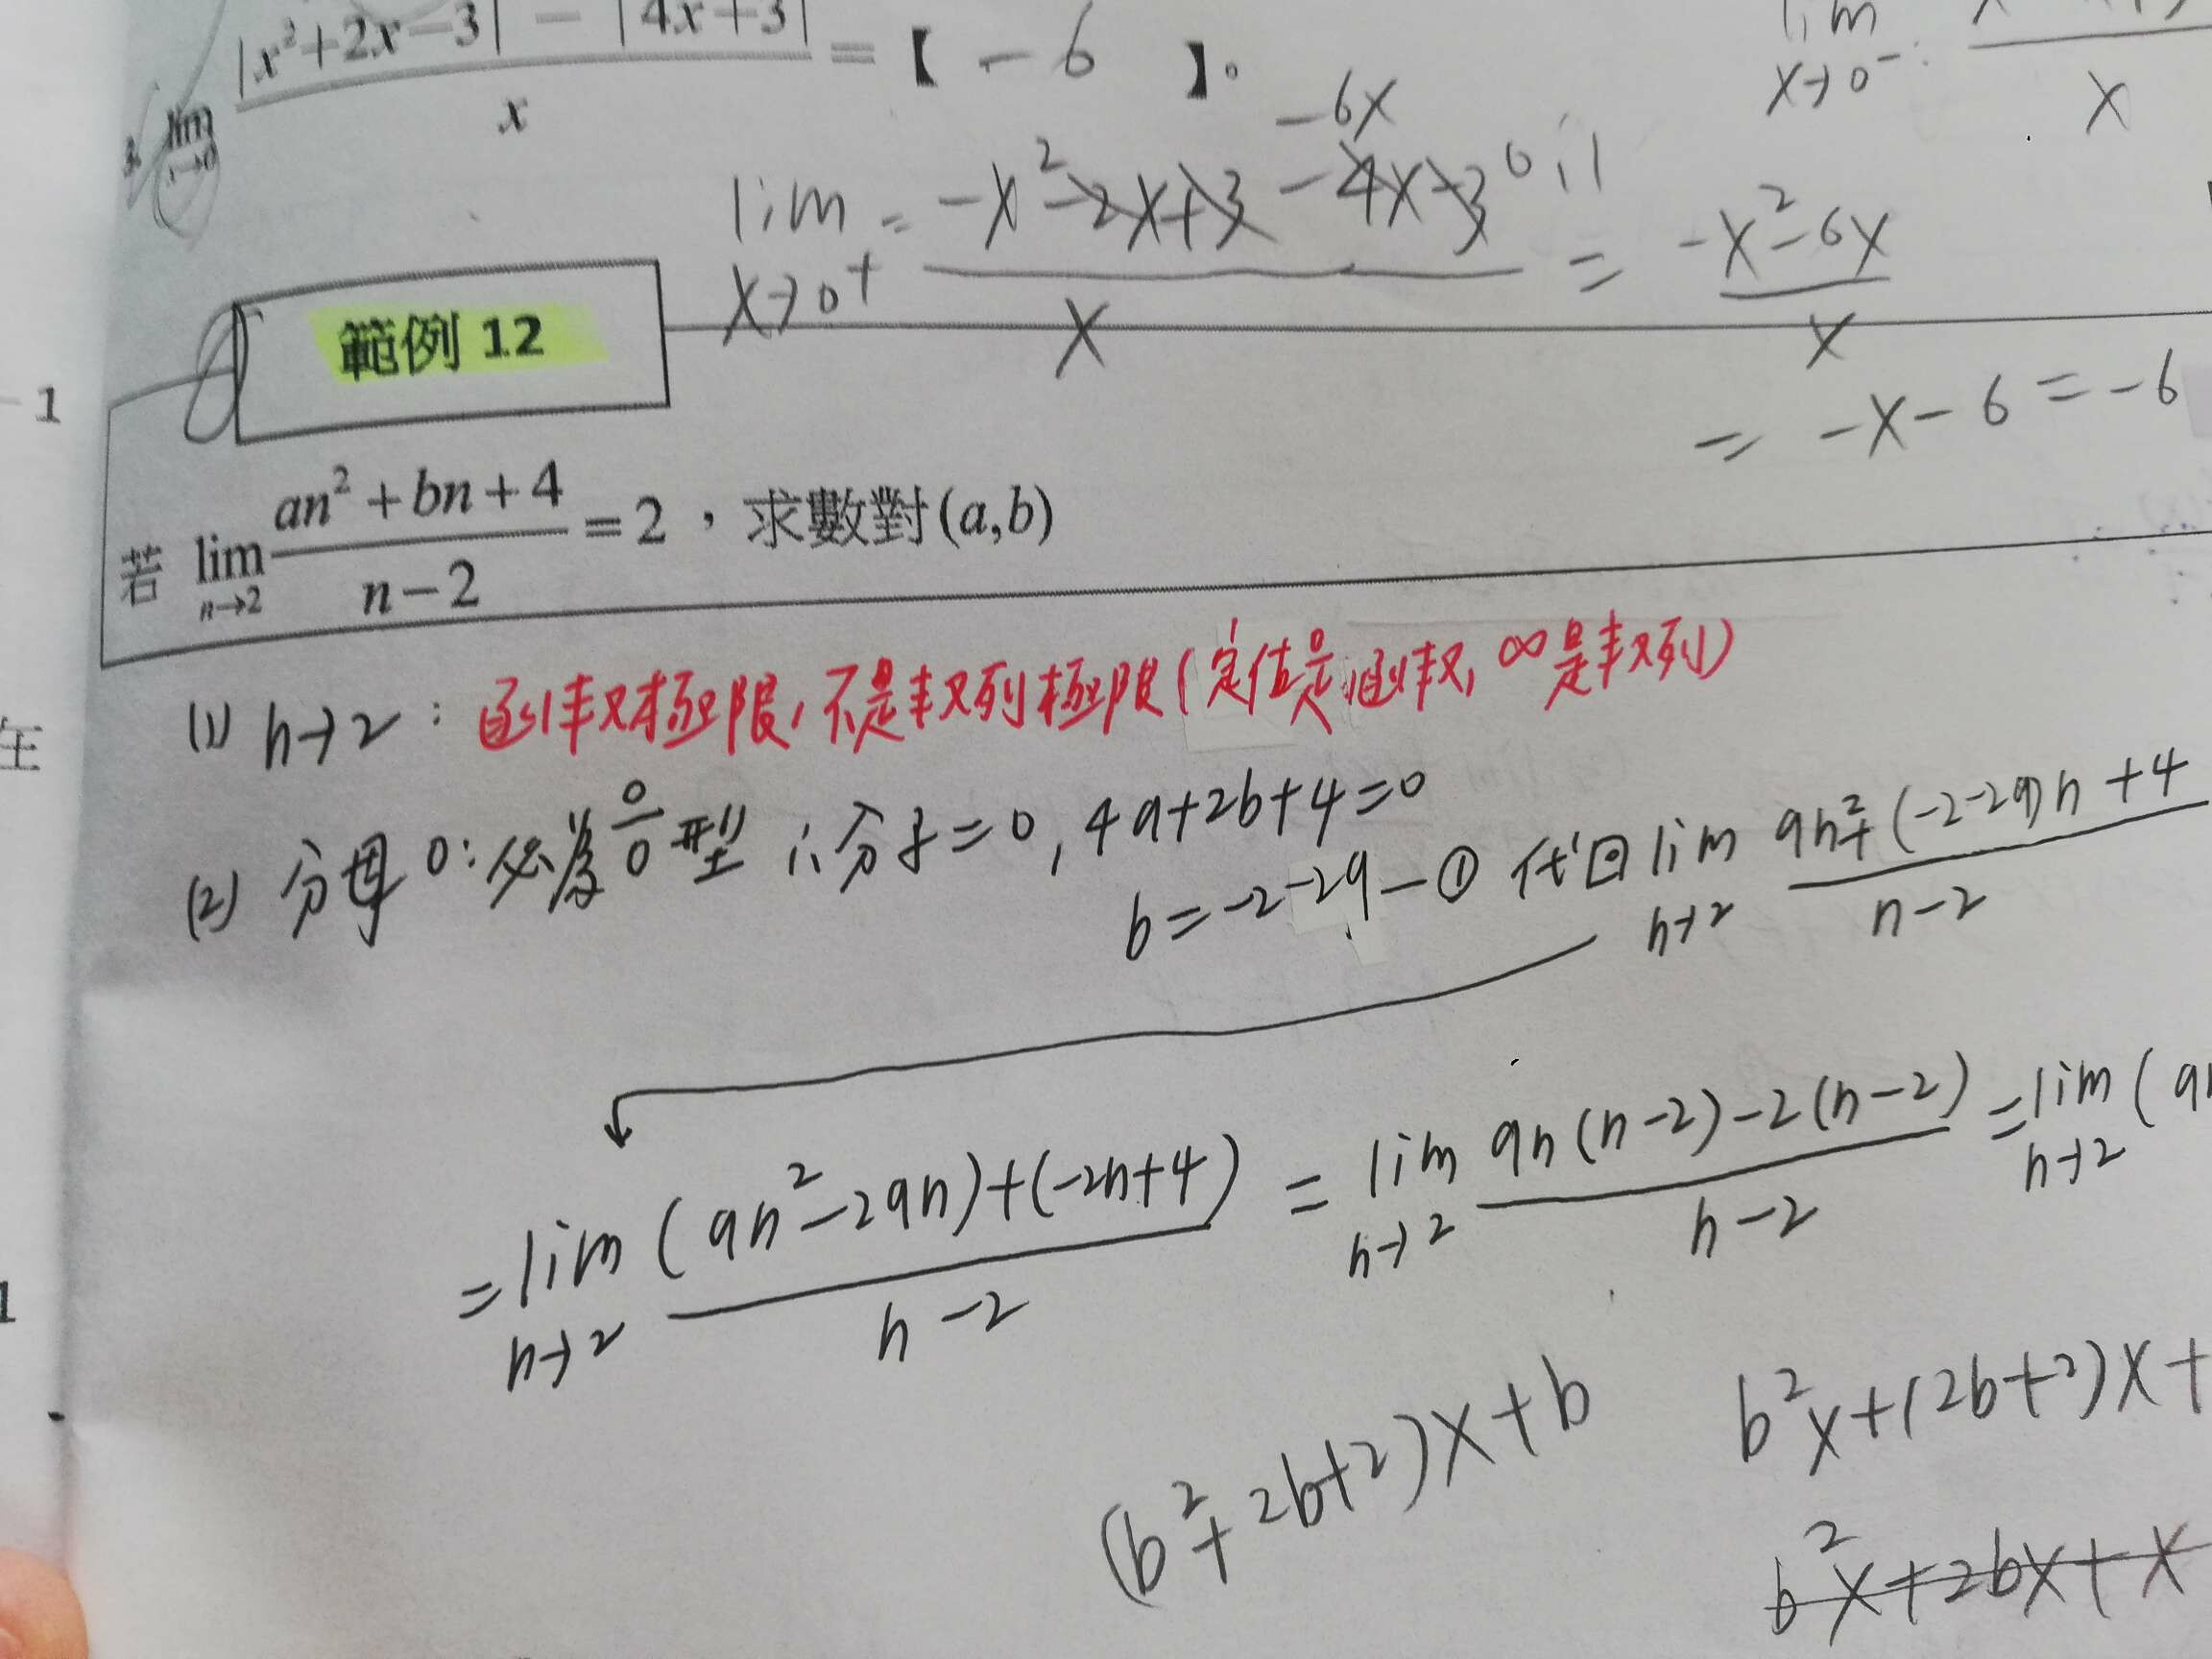 3. lim x→0 (|x²+2x-3| - |4x+3|)/x =【 -6 】。
lim x→0⁻
x
-6x
lim x→0⁺ = (-x²-2x+3-4x-3)/x = (-x²-6x)/x
= -x-6 = -6
範例 12
若 lim n→2 (an²+bn+4)/(n-2) = 2，求數對(a,b)
(1) n→2：函數極限，不是數列極限(定值是函數, ∞是數列)
(2) 分母0：必為 0/0 型 ∴分子=0, 4a+2b+4=0
b=-2-2a-① 代回 lim n→2 (an²+(-2-2a)n+4)/(n-2)
= lim n→2 ((an²-2an)+(-2n+4))/(n-2) = lim n→2 (an(n-2)-2(n-2))/(n-2) = lim n→2 (a
(b²+2b+2)x+b
b²x+(2b+2)x+
b²x+2bx+x
1
1